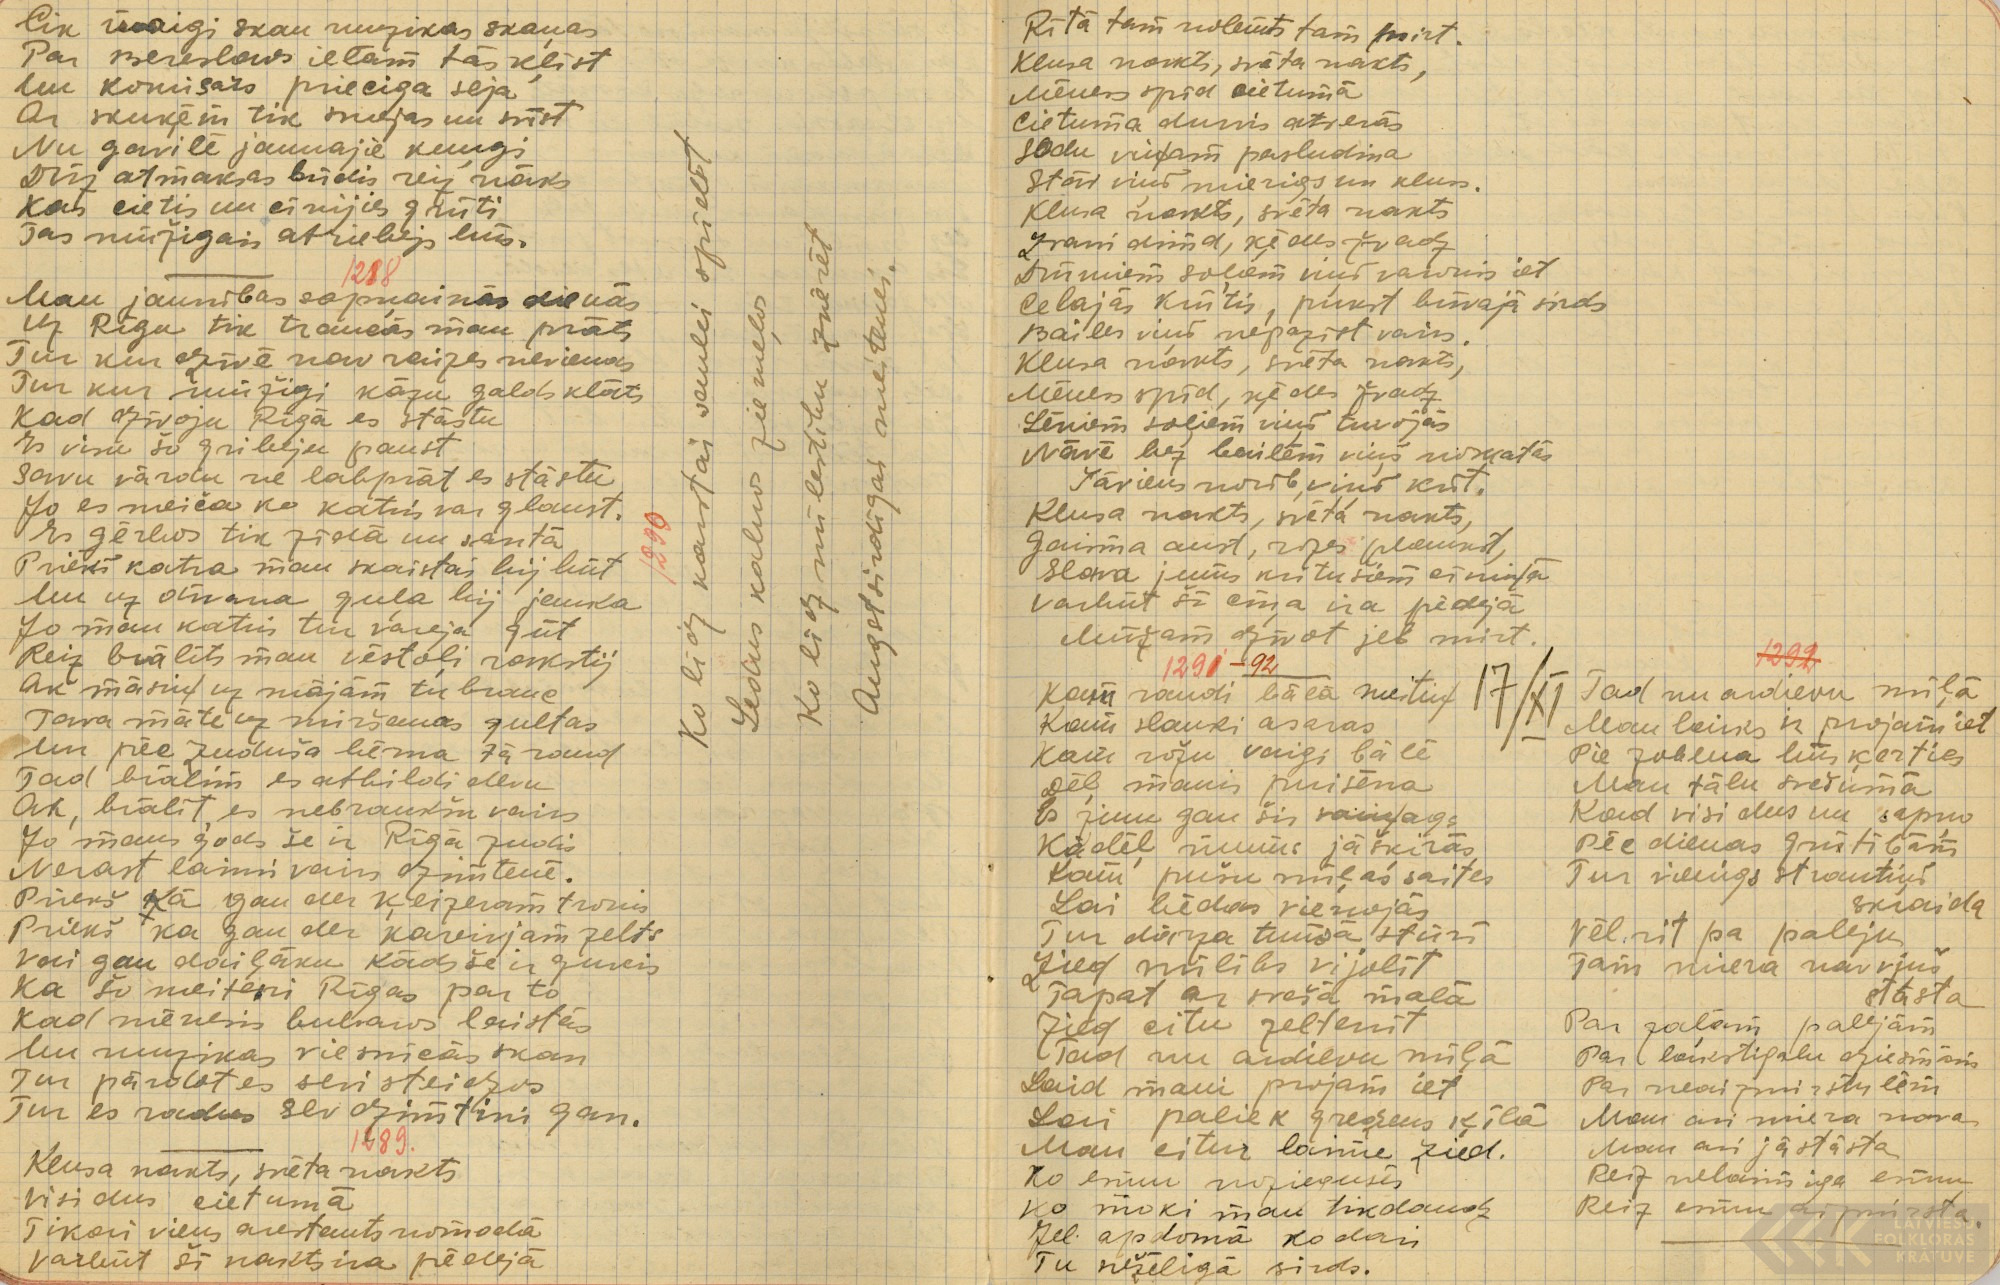 Cik maigi skan muzikas skaņas
Par Bereslavs ielam tās klist
Un komisārs priecīga seja
Ar skuķēm tik smejas un sist
Nu gavilē jaunajie kungi
Drīz atmaksas brīdis reiz nāks
Kas cietis un cīnijies grūti
Tas mūžigais atriebejs būs.
1288
Man jaunības sapņainās dienās
Uz Rīgu tik traucās man prāts
Tur kur dzīvē nav raizes nevienas
Tur kur mūžigi kāzu galds klāts
Kad dzīvoju Rīgā es stāstu
Es visu šo gribēju paust
Savu vārdu ne labprāt es stāstu
Jo es meiča ko katris var glaust.
Es gērbos tik zīdā un samtā
Priekš katra man skaistai bij būt
Un uz dīvana gula bij jauka
Jo man katris tur vareja gūt
Reiz brālits man vēstoli rakstij
Ak māsiņ uz mājām tu brauc
Tava māte uz miršanas gultas
Un pēc zudušā bērna tā raud
Tad brālim es atbildi devu
Ak, brālit, es nebraukšu vairs
Jo mans gods še ir Rīgā zudis
Nerast laimi vairs dzimtenē.
Priekš kā gan der ķeizeram tronis
Priekš ka gan der kareivjam zelts
Vai gan daiļāku kāds še ir guvis
Ka šo meiteni Rīgas par to
Kad mēnesis bulvaros laistās
Un muzikas viesnīcās skan
Tur pārdot es sevi steidzos
Tur es radus sev dzimtini gan.
1289.
Klusa nakts, svēta nakts
Visi dus cietumā
Tikai viens arestants nomodā
Varbūt šī nakts ira pēdejā
1290
Ko lidz karstai saulei spīdēt
Ledus kalnos ziemeļos
Ko lidz mīlestibu zvērēt
Augstsirdigai meitenei.
Rītā tam nolemts tam mirt.
Klusa nakts, svēta nakts,
Mēness spīd cietumā
Cietuma durvis atverās
Sodu viņam pasludina
Stāv viņš mierigs un kluss.
Klusa nakts, svēta nakts
Zvani dimd, ķēdes žvadz
Drūmiem soļiem viņš varonis iet
Celajās krūtis, pukst brīvajā sirds
Bailes viņš nepazīst vairs.
Klusa nakts, svēta nakts,
Mēness spīd, ķēdes žvadz
Lēniem soļiem viņš tuvojās
Nāvē bez bailēm viņš noskatās
Zāviens norīb, viņš krīt.
Klusa nakts, svēta nakts,
Gaisma aust, rozes plaukst,
Slava jums kritušiem cīniņā
Varbūt šī cīņa ira pēdejā
Mūžam dzīvot jeb mirt.
1291 - 92
Kam raudi bālā meitiņ
Kam slauki asaras
Kam rožu vaigi bālē
Dēļ manis puisēna
Es zinu gan šis vaiņags
Kādēļ mums jāšķirās
Kam pušu mīļās saites
Lai bēdas vienojās
Tur dārza tumšā stūrī
Zied mīlibs vijolit
Tapat ar svešā malā
Zied citu zeltenit
Tad nu ardievu mīļā
Laid mani projam iet
Lai paliek gredzens ķīlā
Man citur laime zied.
Ko esmu noziegusies
Ko moki man tik daudz
Jel apdomā ko dari
Tu nežēligā sirds.
17/XI
1292
Tad nu ardievu mīļā
Man laiks ir projam iet
Pie zobena būs ķerties
Man tālu svešumā
Kad visi dus un sapņo
Pēc dienas grūtibām
Tur vienīgs strautiņš
skraida
Vēl rit pa paleju
Tam miera nav viņš
stāsta
Par zaļam palejām
Par lakstigalu dziesmām
Par neaizmirstulēm
Man ari miera nava
Man ari jāstāsta
Reiz nelaimiga esmu
Reiz esmu aizmirsta.
LATVIEŠU
FOLKLORAS
KRĀTUVE